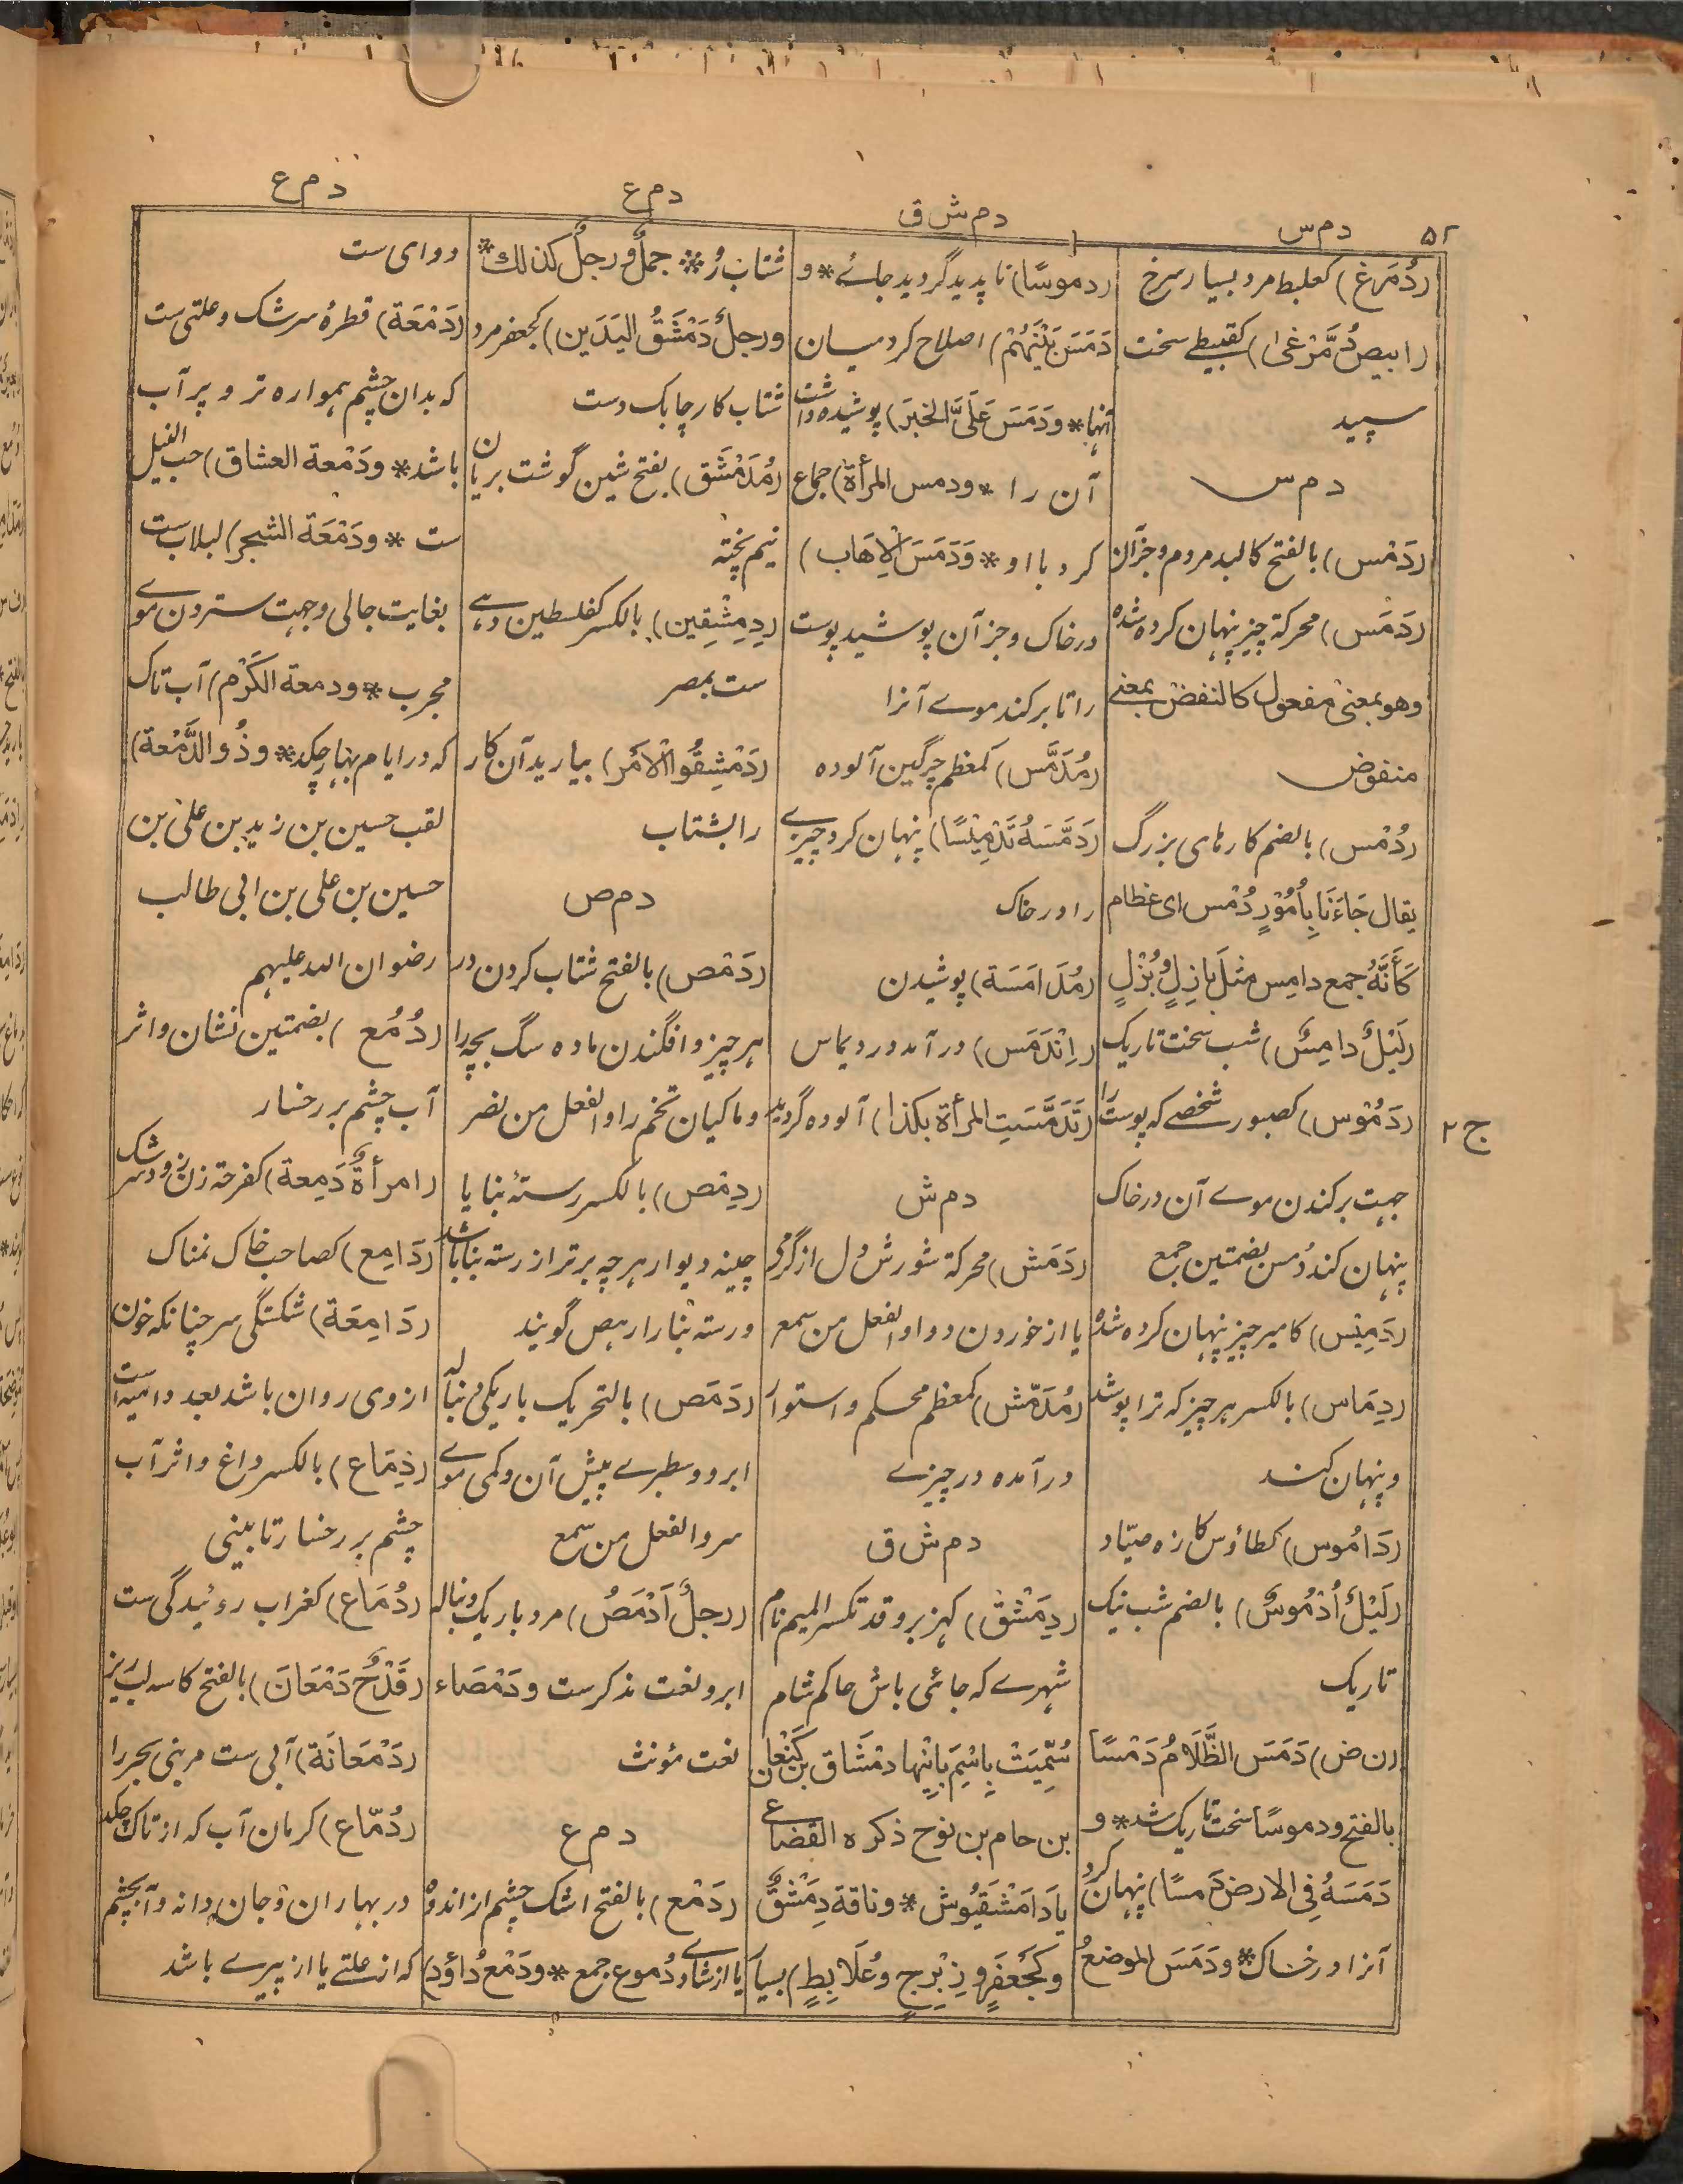 ۵۲
دم‌س
دم‌ش‌ق
دم‌ع
دم‌ع
(دُمَرِغ) کعلبط مرد بسیار سرخ
(ابیض دُمَّرْغیٰ) کقبیطی سخت
سپید
دم‌س
(دَمْس) بالفتح کالبد مردم و جزآن
(دَمَس) محرکة چیز پنهان کرده شده
وهو بمعنی مفعول کالنفض بمعنی
منفوض
(دُمْس) بالضم کارهای بزرگ
یقال جَاءَنَا بِاُمُوْرٍ دُمْس ای عظام
کَأَنَّهُ جمع دامِس مثل بازِلٍ وبُزْلٍ
(لَیْلٌ دامِسٌ) شب سخت تاریک
ج ۲
(دَمُوْس) کصبور شخصے که پوست را
جهت برکندن موے آن در خاک
پنهان کند دُمس بضمتین جمع
(دَمِیْس) کامیر چیز پنهان کرده شده
(دِمَاس) بالکسر هر چیز که ترا پوشد
و پنهان کند
(دَامُوس) کطاؤس کازه صیّاد
(لَیْلٌ أُدْمُوسٌ) بالضم شب نیک
تاریک
(ن ض) دَمَسَ الظَّلَامُ دَمْسًا
بالفتح ودموسًا سخت تاریک شد * و
دَمَسَهُ فِی الارض دَمسًا) پنهان کرد
آنرا در خاک * ودَمَسَ الموضعُ
(دموسًا) ناپدید گردید جائے * و
دَمَسَ بَیْنَهُمْ) اصلاح کرد میان
آنها * ودَمَسَ عَلَیَّ الخبرَ) پوشیده داشت
آن را * ودمس المرأة) جماع
کرد با او * وَدَمَسَ الاِهَاب)
در خاک و جز آن پوشید پوست
را تا برکند موے آنرا
(مُدَمَّس) کمعظم چرگین آلوده
(دَمَّسَهُ تَدْمِیْسًا) پنهان کرد چیزے
را در خاک
(مُدَامَسَة) پوشیدن
(اِنْدَمَس) در آمد در دیماس
(تَدَمَّسَتِ المرأة بکذا) آلوده گردید
دم‌ش
(دَمَش) محرکة شورش دل از گرمی
یا از خوردن دوا والفعل من سمع
(مُدَمَّش) کمعظم محکم و استوار
درآمده در چیزے
دم‌ش‌ق
(دِمَشْق) کهزبر وقد تکسر المیم نام
شهرے که جائی باش حاکم شام
سُمِّیَتْ بِاسْمِ بَانِیْها دمْشَاق بن کَنْعان
بن حام بن نوح ذکره القضاعی
یا دَامَشْقَیُوْش * وناقة دِمَشْقٌ
وکَجَعفَرٍ وزِبْرِجٍ وعُلَابِطٍ) بسیار
شتاب رُو * جملٌ ورجلٌ کذلك *
ورجلٌ دَمْشَقُ الیَدَین) کجعفر مرد
شتاب کار چابک دست
(مُدَمْشَق) بفتح شین گوشت بریان
نیم پخته
(دِمِشْقِین) بالکسر کفلسطین دهے
ست بمصر
(دَمْشِقُوا الْاَمْرَ) بیارید آن کار
را بشتاب
دم‌ص
(دَمْص) بالفتح شتاب کردن در
هر چیز و افگندن ماده سگ بچه را
و ماکیان تخم را والفعل من نصر
(دِمْص) بالکسر رستهٔ بنا یا
چینه دیوار هر چه برتر از رسته بنا باشد
و رسته بُنا را رهص گویند
(دَمَص) بالتحریک باریکی دنباله
ابرو و سطبرے پیش آن و کمی موے
سر والفعل من سمع
(رجلٌ اَدْمَصُ) مرد باریک دنباله
ابرو نعت مذکرست ودَمْصَاء
نعت مؤنث
دم‌ع
(دَمْع) بالفتح اشک چشم از اندوه
یا از شادے دُموع جمع * ودَمْعُ داوٗد)
دوای ست
(دَمْعَة) قطرهٔ سرشک و علتی ست
که بدان چشم همواره تر و پر آب
باشد * ودَمْعة العشاق) حب النیل
ست * ودَمْعَة الشجر) لبلاب ست
بغایت جالی و جهت ستردن موے
مجرب * ودمعة الکَرْم) آب تاک
که در ایام بهار چکد * وذُو الدَّمْعة)
لقب حسین بن زید بن علی بن
حسین بن علی بن ابی طالب
رضوان الله علیهم
(دُمُع) بضمتین نشان و اثر
آب چشم بر رخسار
(امرأةٌ دَمِعة) کفرحة زن زود سرشک
(دَامِع) کصاحب خاک نمناک
(دَامِعَة) شکستگی سر چنانکه خون
ازوی روان باشد بعد دامیة است
(دِمَاع) بالکسر داغ و اثر آب
چشم بر رخسار تا بینی
(دُمَاع) کغراب روئیدگی ست
(قَدَحٌ دَمْعَانَ) بالفتح کاسه لبریز
(دَمْعَانَة) آبی ست مر بنی بحر را
(دُمّاع) کرمان آب که از تاک چکد
در بهاران وجان دانه و آب چشم
که از علتے یا از پیرے باشد